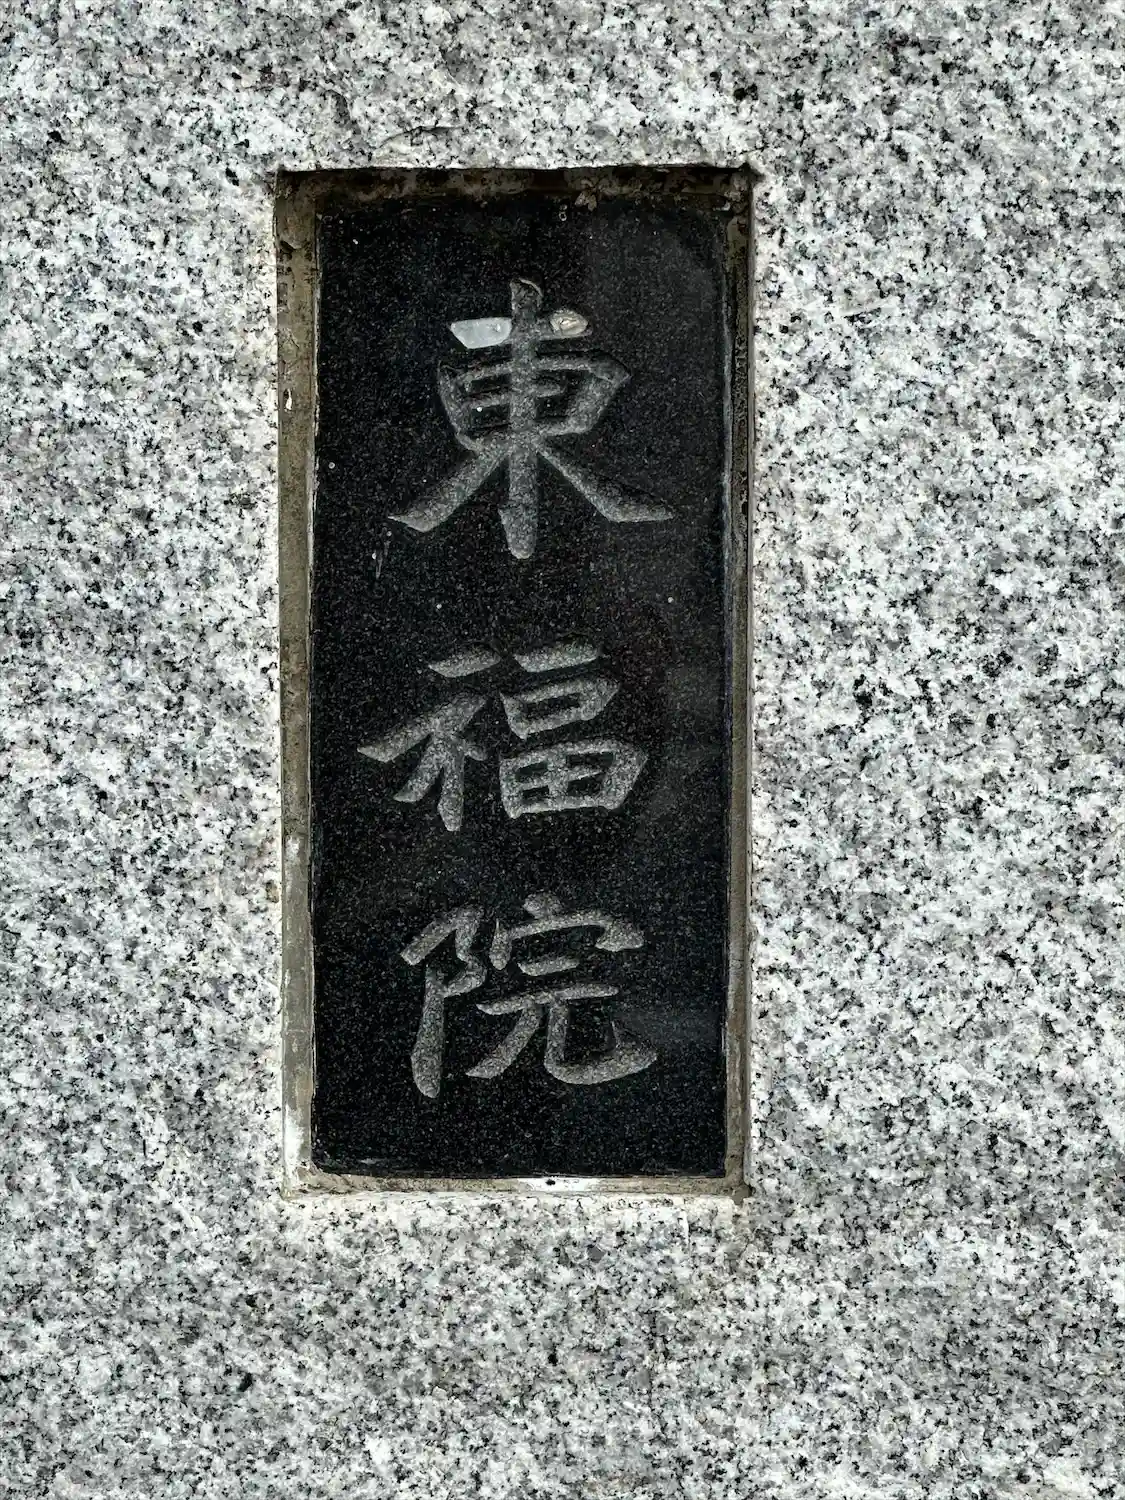 東福院